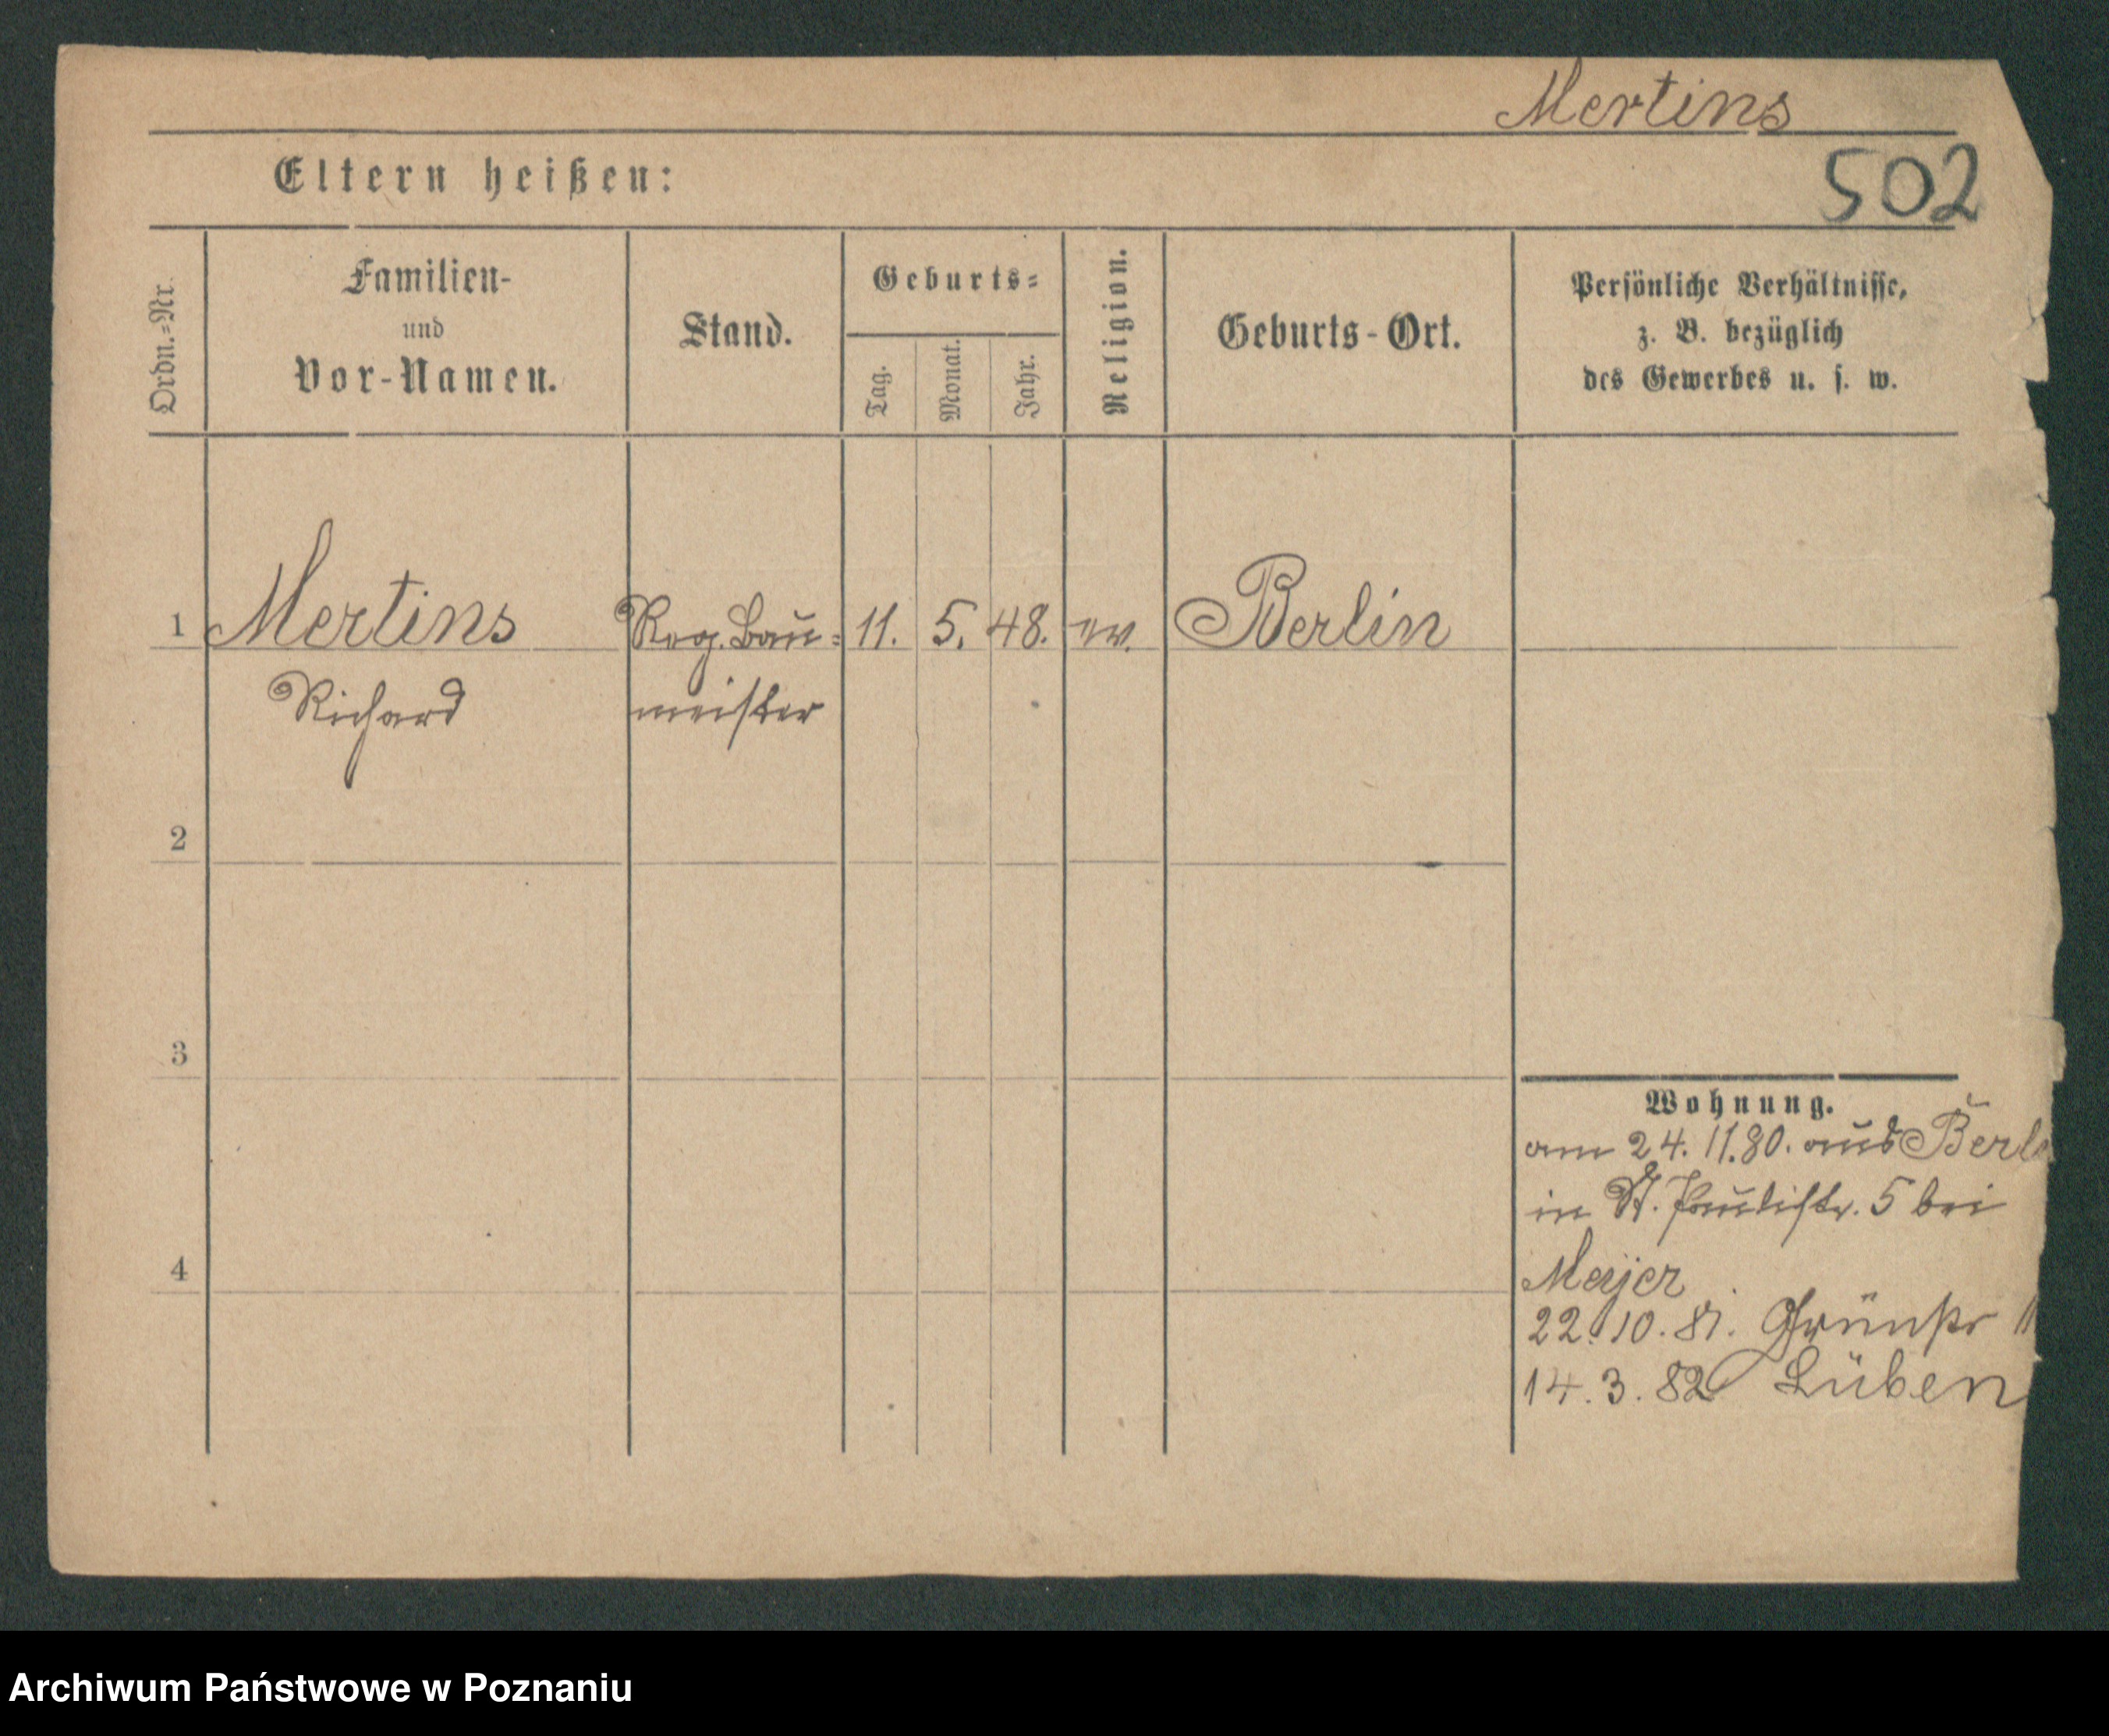 Mertins
502
Eltern heißen:
Ordn.-Nr.
Familien-
und
Vor-Namen.
Stand.
Geburts-
Tag.
Monat.
Jahr.
Religion.
Geburts-Ort.
Persönliche Verhältnisse,
z. B. bezüglich
des Gewerbes u. s. w.
1 Mertins Reg. Bau- 11. 5. 48. ev. Berlin
Richard meister
2
3
4
Wohnung.
am 24. 11. 80. aus Berl
in St. Paulistr. 5 bei
Meyer
22. 10. 81. Grünstr
14. 3. 82 Lüben
Archiwum Państwowe w Poznaniu